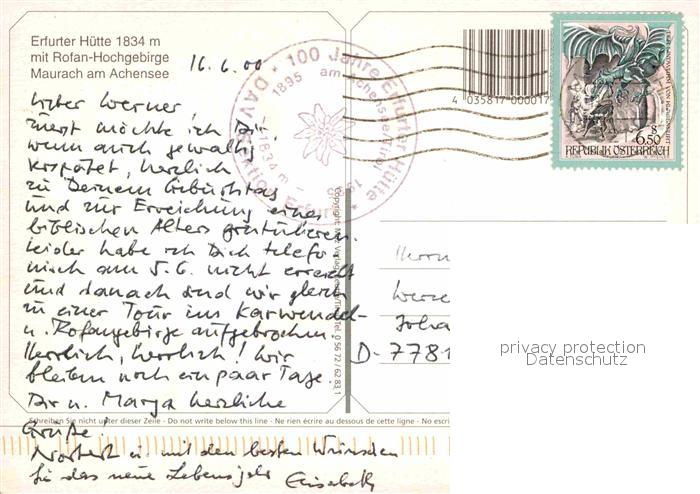 Erfurter Hütte 1834 m
mit Rofan-Hochgebirge
Maurach am Achensee
16.6.00
Lieber Werner
zuerst möchte ich Dir,
wenn auch gewaltig
verspätet, herzlich
zu Deinem Geburtstag
und zur Erreichung eines
biblischen Alters gratulieren.
Leider habe ich Dich telefo-
nisch am 5.6. nicht erreicht
und danach sind wir gleich
zu einer Tour ins Karwendel-
u. Rofangebirge aufgebrochen
Herrlich, herrlich! Wir
bleiben noch ein paar Tage.
Dir u. Marga herzliche
Schreiben Sie nicht unter dieser Zeile - Do not write below this line - Ne rien écrire au dessous de cette ligne - No escri
Grüße!
Norbert u. mit den besten Wünschen
für das neue Lebensjahr Elisabeth
100 Jahre Erfurter Hütte
DAV
1895 am Achensee/Tirol
1834 m
4 035817 000017
S 6.50
REPUBLIK ÖSTERREICH
Tel. 0 56 72 / 62 83 1
Herrn
Werne
Joha
D-7781
privacy protection
Datenschutz